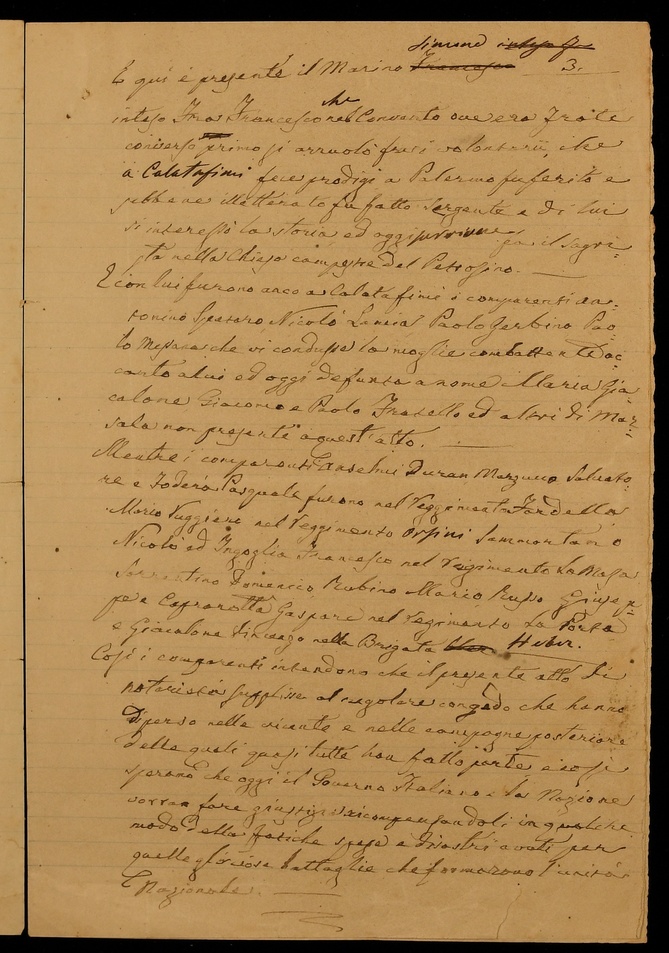 Simone inteso Fra
3.
E qui è presente il Marino Francesco
inteso Fra Francesco che nel Convento ove era Frate
converso primo si arruolò fra i volontarii, che
a Calatafimi fece prodigi a Palermo fu ferito e
sebbene illetterato fu fatto Sergente e di lui
si interessò la storia ed oggi per il Sagri-
sta nella Chiesa campestre del Petrosino.
E con lui furono anco a Calatafimi i comparenti An-
tonino Spataro Nicolò Lamia Paolo Gerbino Pao-
lo Messana che vi condusse la moglie combattente ac-
canto a lui ed oggi defunta a nome Maria Gia-
calone Giacomo e Paolo Fratello ed altri di Mar-
sala non presenti a quest'atto.
Mentre i comparenti Anselmi Duran Marzucco Salvato-
re e Foderà Pasquale furono nel Reggimento Fardella
Mario Ruggiero nel Reggimento Orsini Sammartano
Nicolò ed Ingoglia Francesco nel Regimento La Masa
Sorrentino Domenico, Rubino Mario Russo Giusep-
pe e Caprarotta Gaspare nel Regimento La Porta
e Giacalone Vincenzo nella Brigata Heber.
Così i comparenti intendono che il presente atto di
notorietà supplisse al regolare congedo che hanno
disperso nelle vicente e nelle campagne posteriore
delle quali quasi tutti han fatto parte e così
sperano che oggi il Governo Italiano e la Nazione
vorran fare giustizia ricompensandoli in qualche
modo delle fatiche spese e disastri avuti per
quelle gloriose battaglie che formarono l'unità
Nazionale.